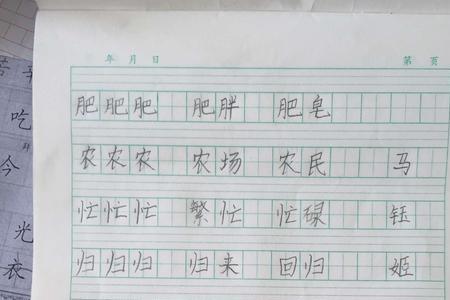 年 月 日 第 页
肥肥肥 肥胖 肥皂
农农农 农场 农民 马
忙忙忙 繁忙 忙碌 钰
归归归 归来 回归 姬
苦辛
吃
今
光
衣